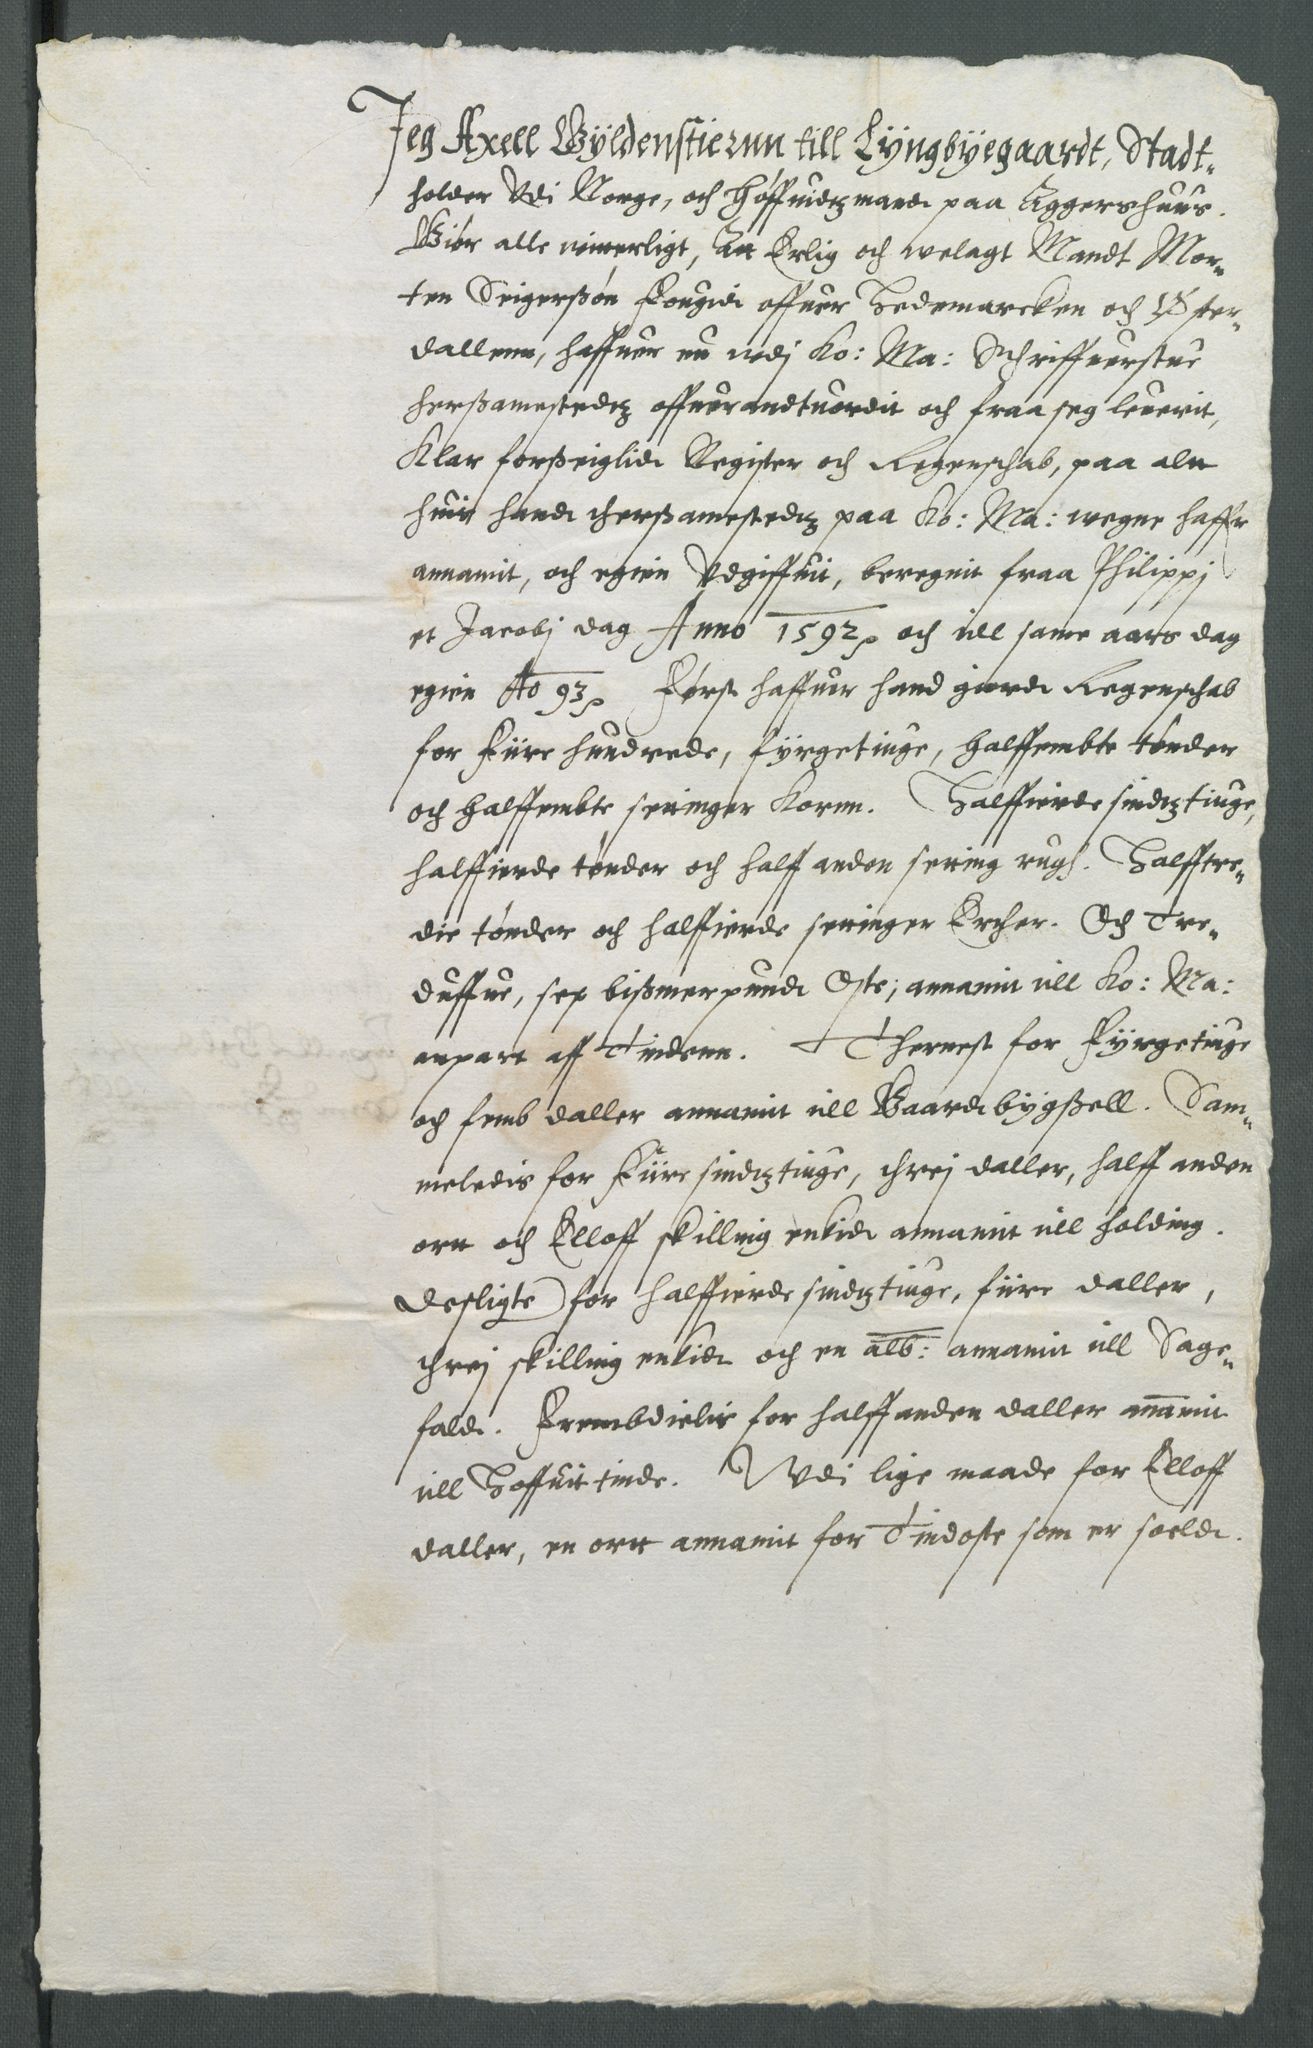 Jeg Axell Gÿldenstiernn till Lÿngbÿegaardt, Stadt-
holder Vdi Norge, och Høffuidtzmandt paa Aggershuus.
Giør alle vitterligt, Att Erlig och welagt Mandt Mor-
ten Seigerßøn Fougidt offuer Hedemarcken och Øster-
dallenn, haffuer nu vdj Ko: Ma: Schriffuerstue
herßamestedtz offuerandtuordit och fraa seg leuerit,
Klar forßeiglidt Register och Regenschab, paa alt
huis handt therßamestedtz paa Ko: Ma: wegne haffr
annamit, och egien Vdgiffuit, beregnit fraa Philippj
et Jacobj dag Anno 1592 och till same aars dag
egien Ao 93 Først haffuer hand giordt Regenschab
for Fiire hundrede, fÿrgetiuge, halffembte tønder
och halffembte settinger Kornn. Halffierde sindtztiuge,
halffierde tønder och halff anden setting rugh. Halfftre-
die tønder och halffierde settinger Ercher. Och Tre-
duffue, sex bißmerpundt Oste, annamit till Ko: Ma:
anpart aff Tindenn. Thernest for Fÿrgetiuge
och femb daller annamit till Gaardtbÿgßell. Sam-
meledis for Fiire sindtztiuge, threj daller, halff anden
ortt och Elloff skilling enkidt annamit till holding.
Desligte for halffierde sindtztiuge, fiire daller,
threj skilling enkidt och en alb: annamit till Sage-
fald. Frembdielis for halffanden daller annamit
till Hoffuittinde. Vdi lige maade for Elloff
daller, en ortt annamit for Tindoste som er soeldt.